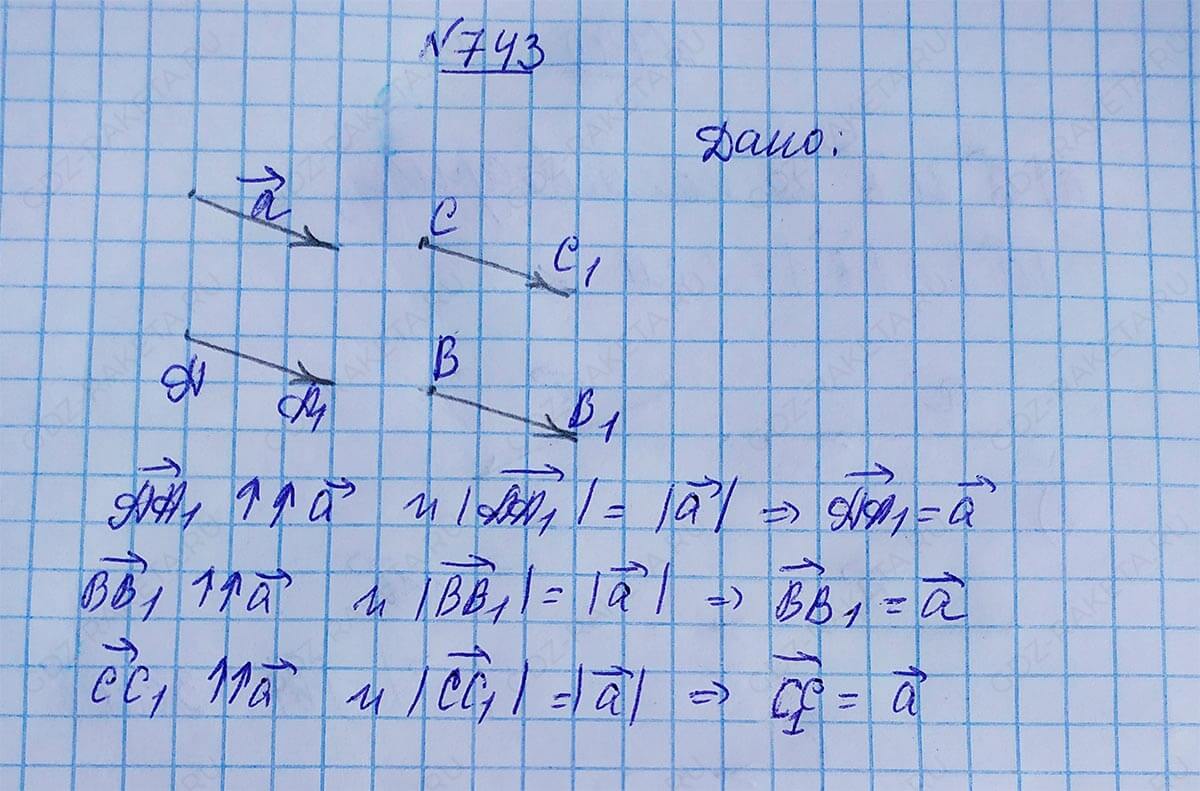 №743
Дано:
a⃗
C
C₁
A
A₁
B
B₁
AA₁⃗ ↑↑ a⃗ и |AA₁⃗| = |a⃗| ⇒ AA₁⃗ = a⃗
BB₁⃗ ↑↑ a⃗ и |BB₁⃗| = |a⃗| ⇒ BB₁⃗ = a⃗
CC₁⃗ ↑↑ a⃗ и |CC₁⃗| = |a⃗| ⇒ C₁C⃗ = a⃗
GDZ-RAKETA.RU